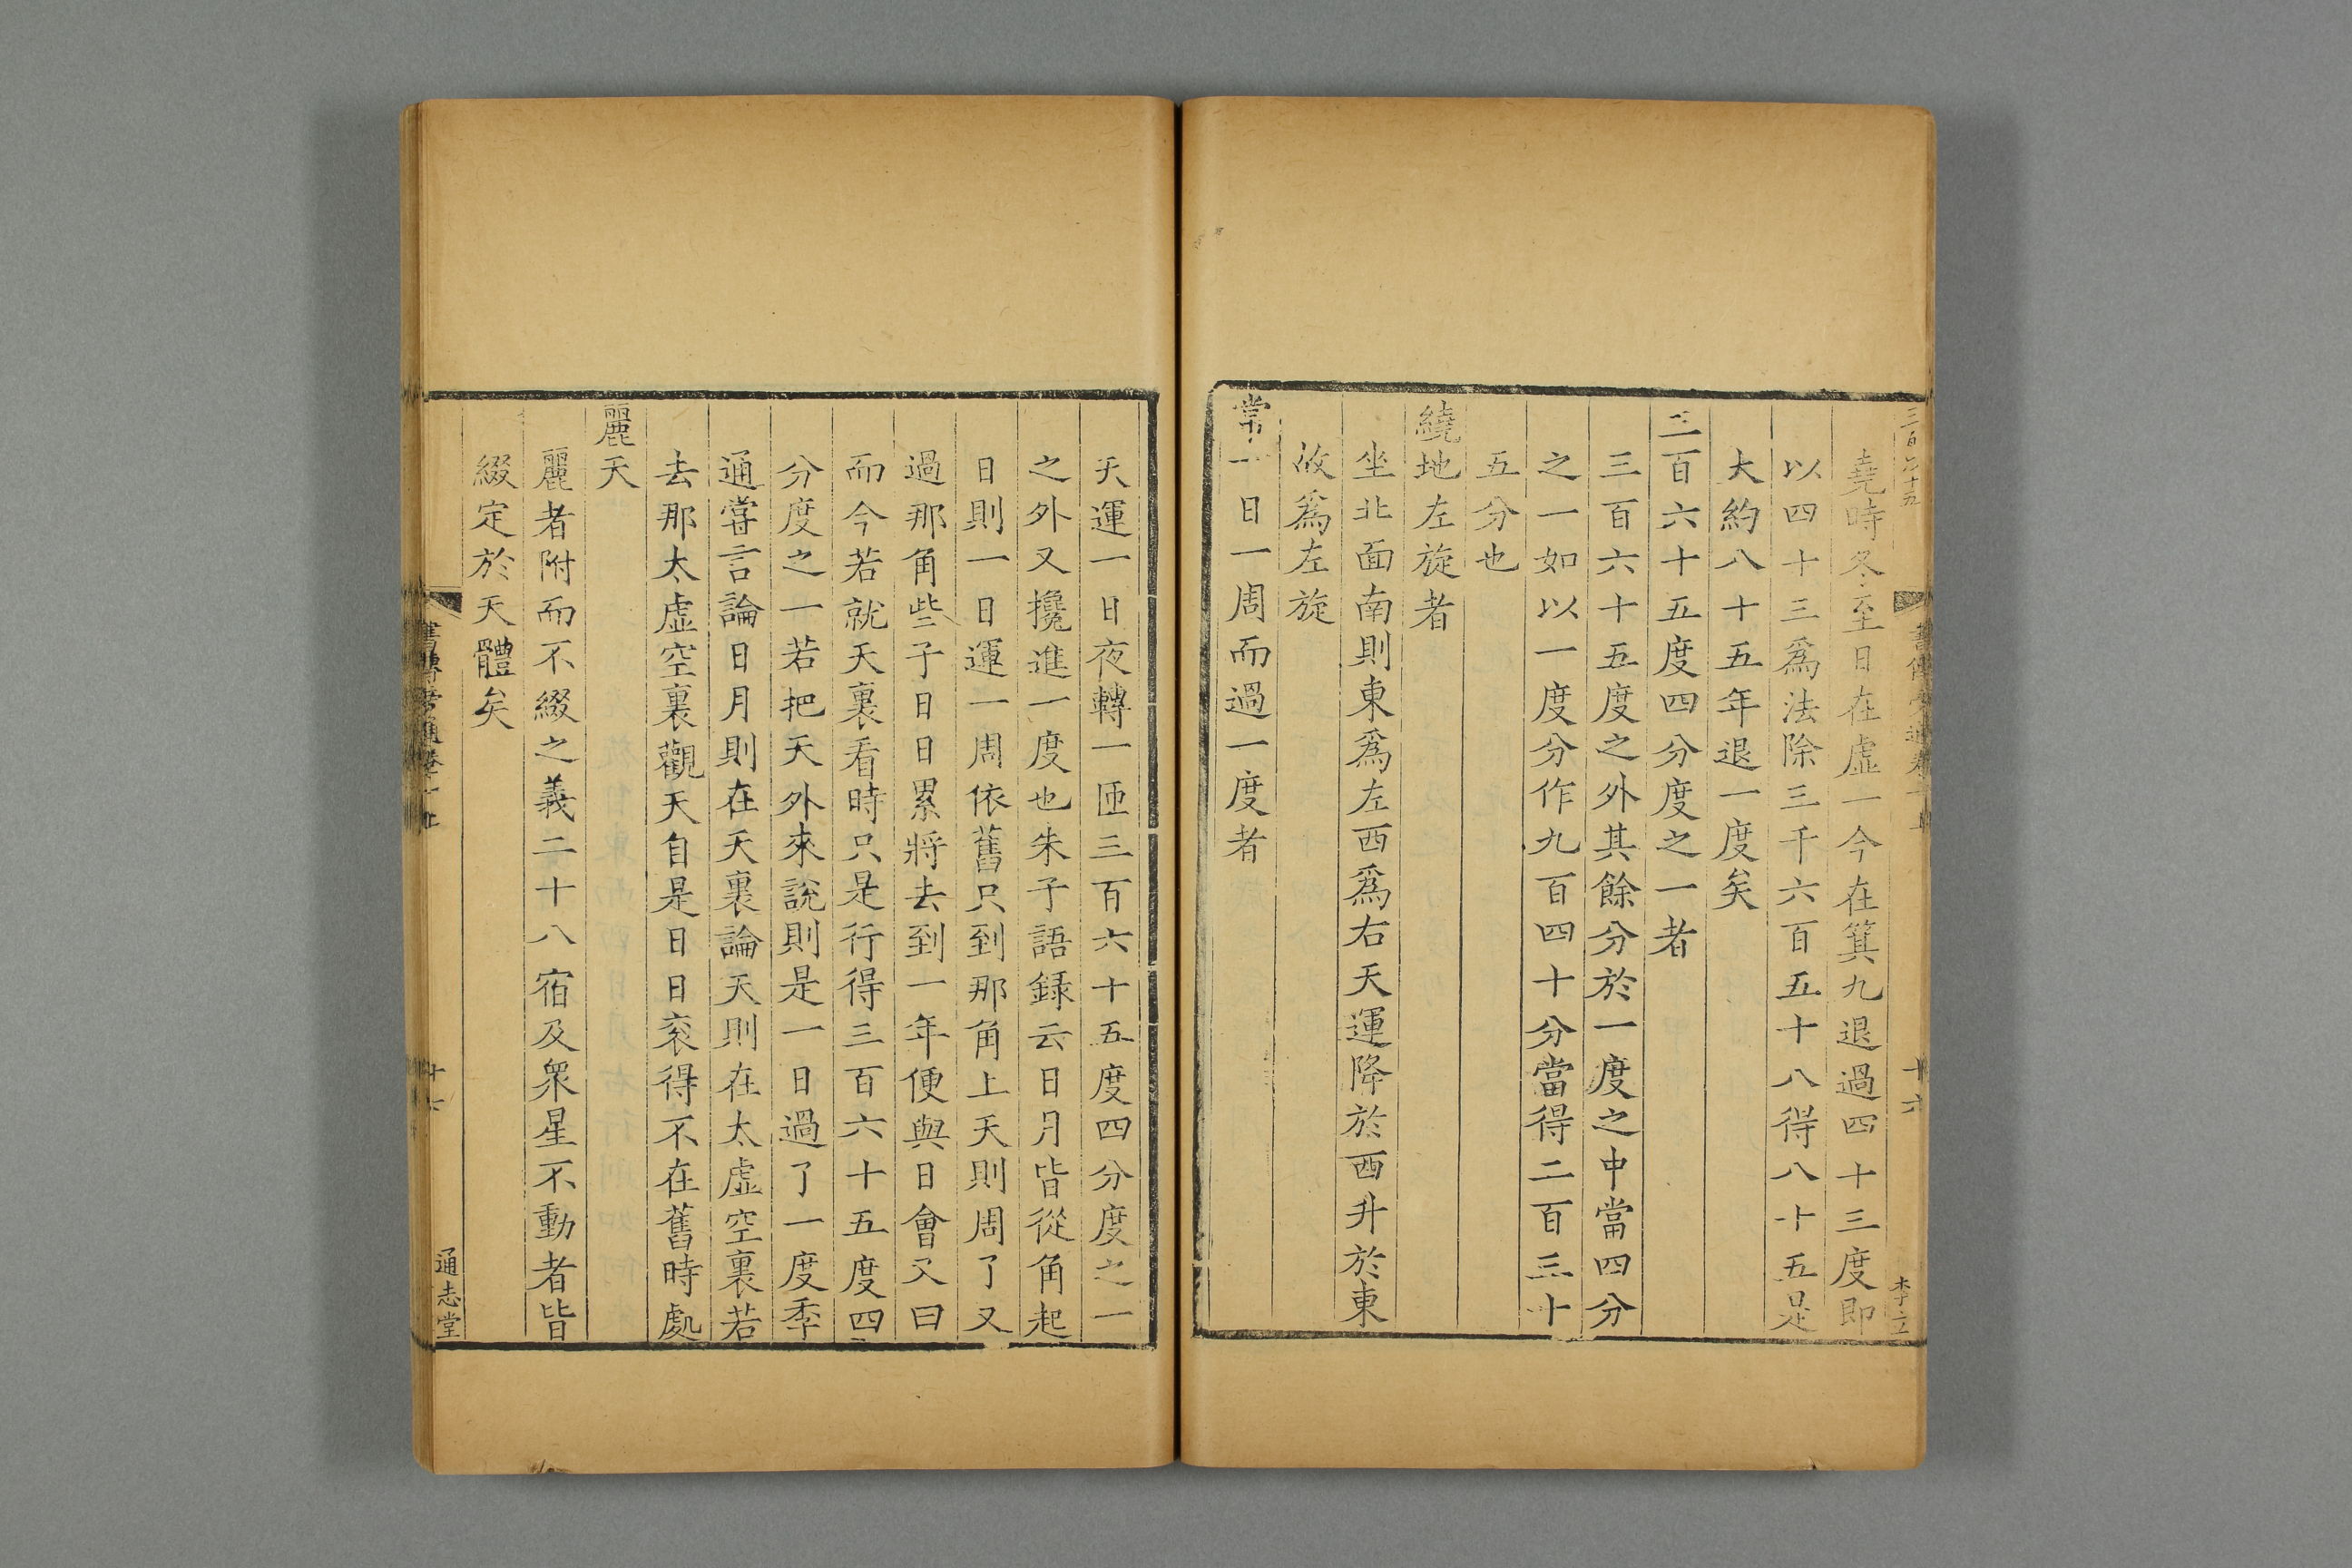 堯時冬至日在虛一今在箕九退過四十三度即
以四十三爲法除三千六百五十八得八十五是
大約八十五年退一度矣
三百六十五度四分度之一者
三百六十五度之外其餘分於一度之中當四分
之一如以一度分作九百四十分當得二百三十
五分也
繞地左旋者
坐北面南則東爲左西爲右天運降於西升於東
故爲左旋
常一日一周而過一度者
十六
李立
天運一日夜轉一匝三百六十五度四分度之一
之外又攙進一度也朱子語録云日月皆從角起
日則一日運一周依舊只到那角上天則周了又
過那角些子日日累將去到一年便與日會又曰
而今若就天裏看時只是行得三百六十五度四
分度之一若把天外來說則是一日過了一度季
通嘗言論日月則在天裏論天則在太虛空裏若
去那太虛空裏觀天自是日日衮得不在舊時處
麗天
麗者附而不綴之義二十八宿及衆星不動者皆
綴定於天體矣
通志堂